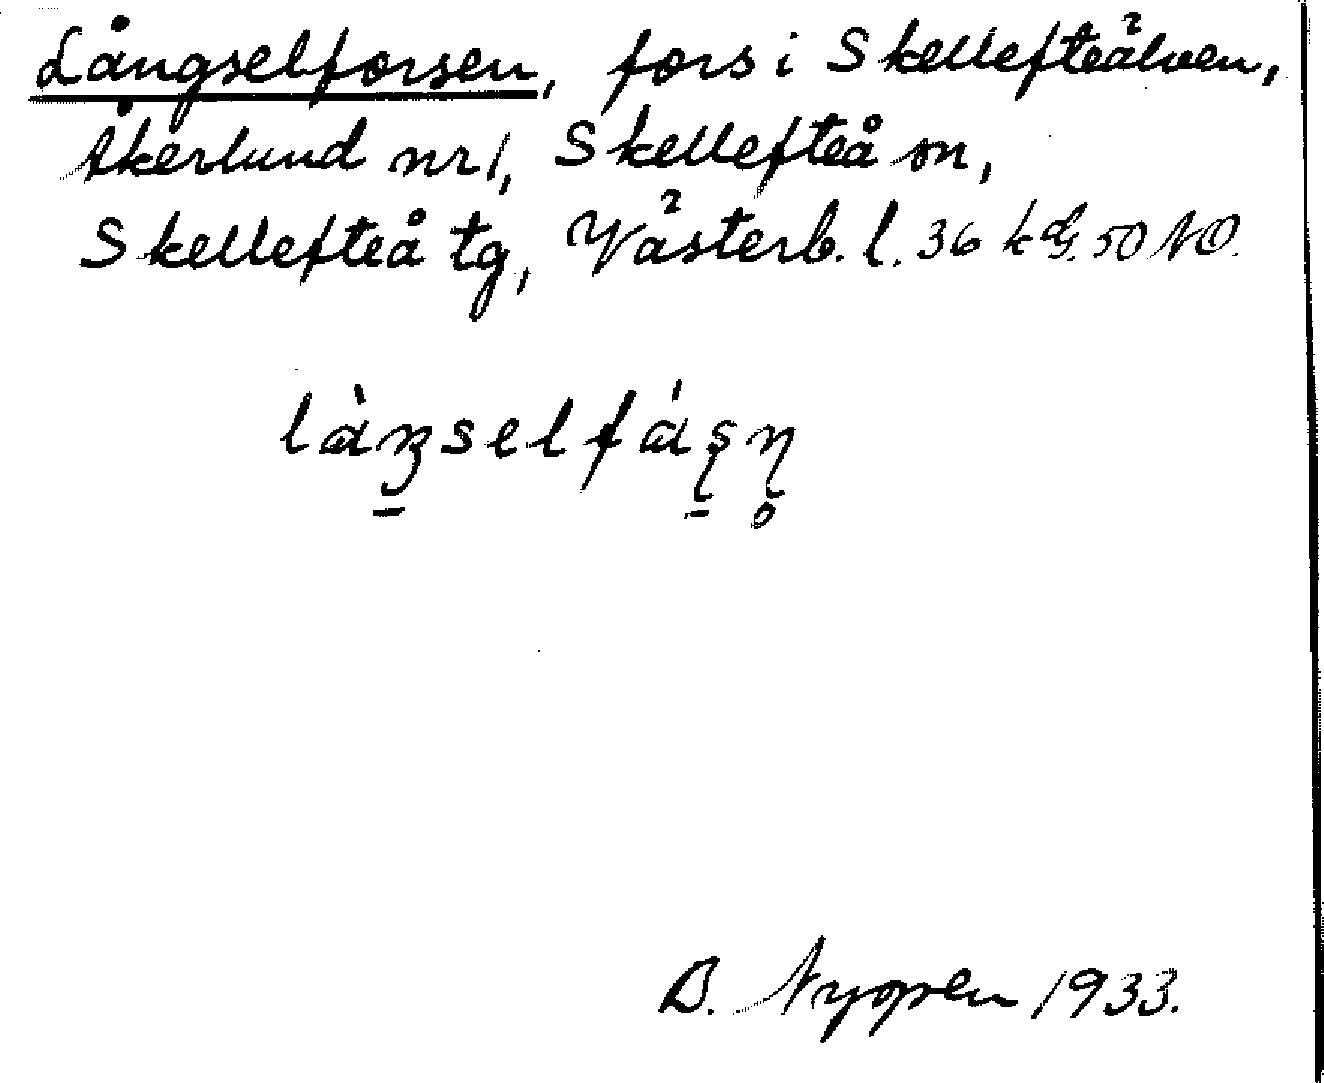 Långselforsen, fors i Skellefteälven,
Åkerlund nr 1, Skellefteå sn,
Skellefteå tg, Västerb. l. 36 50 NO.
B. Nygren 1933.